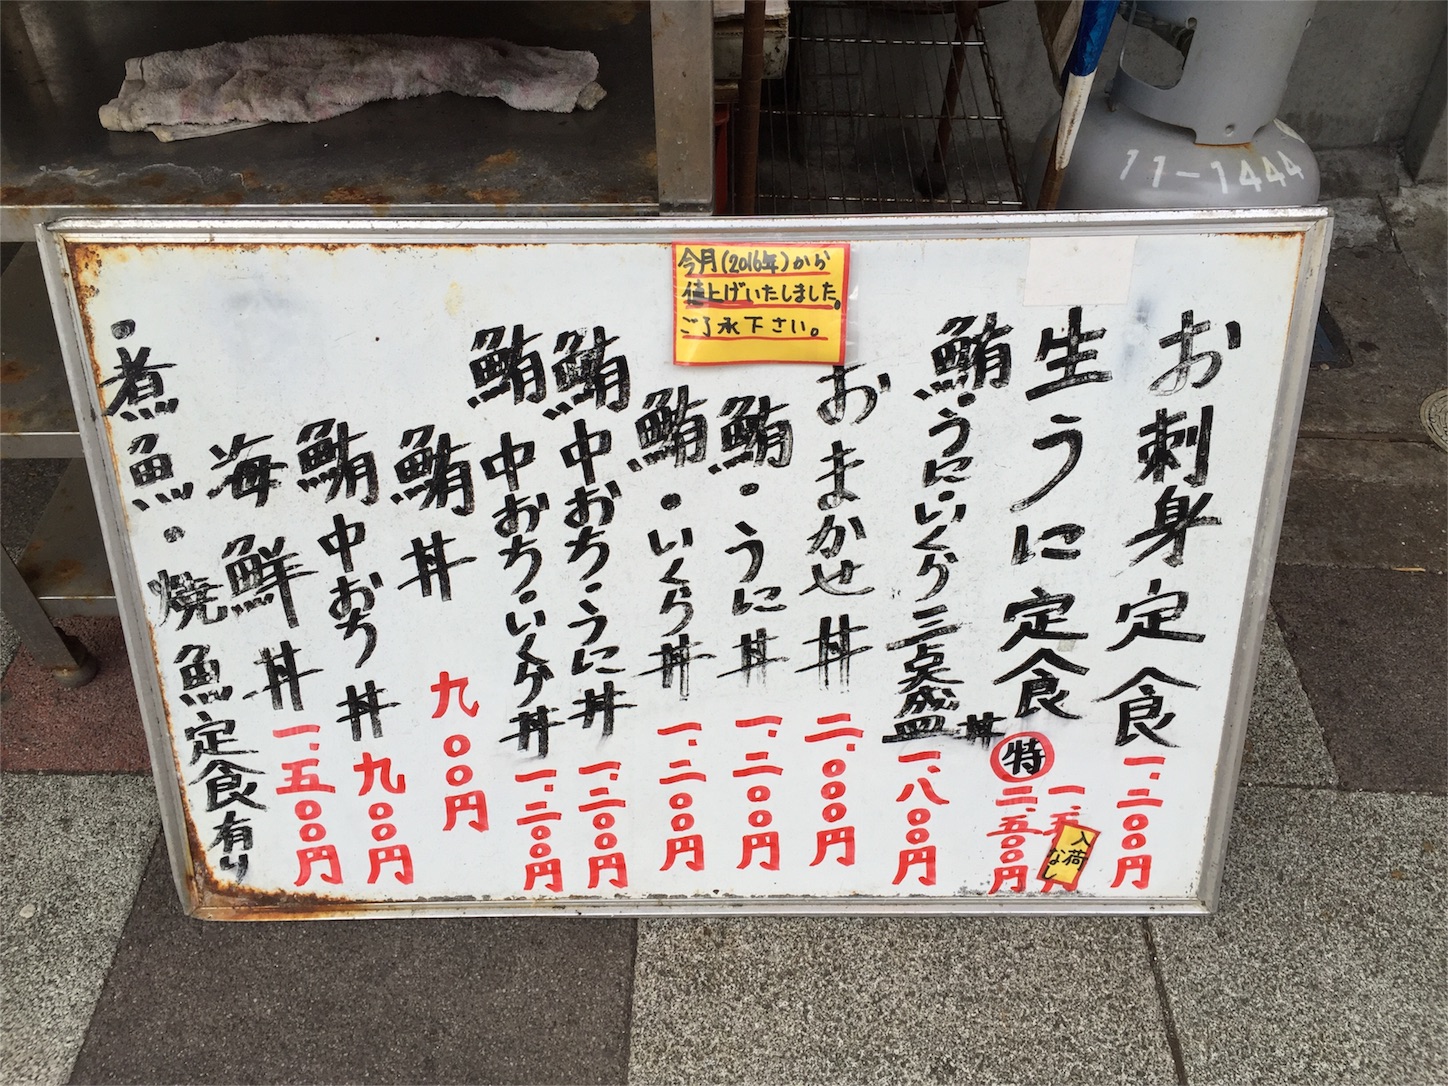 11-1444
今月(2016年)から
値上げいたしました。
ご了承下さい。
お刺身定食 一、二〇〇円
生うに定食 一、五
入荷なし
特 二、五〇〇円
鮪・うに・いくら三点盛丼 一、八〇〇円
おまかせ丼 二、〇〇〇円
鮪・うに丼 一、二〇〇円
鮪・いくら丼 一、二〇〇円
鮪中おち・うに丼 一、二〇〇円
鮪中おち・いくら丼 一、二〇〇円
鮪丼 九〇〇円
鮪中おち丼 九〇〇円
海鮮丼 一、五〇〇円
・煮魚・焼魚定食有り